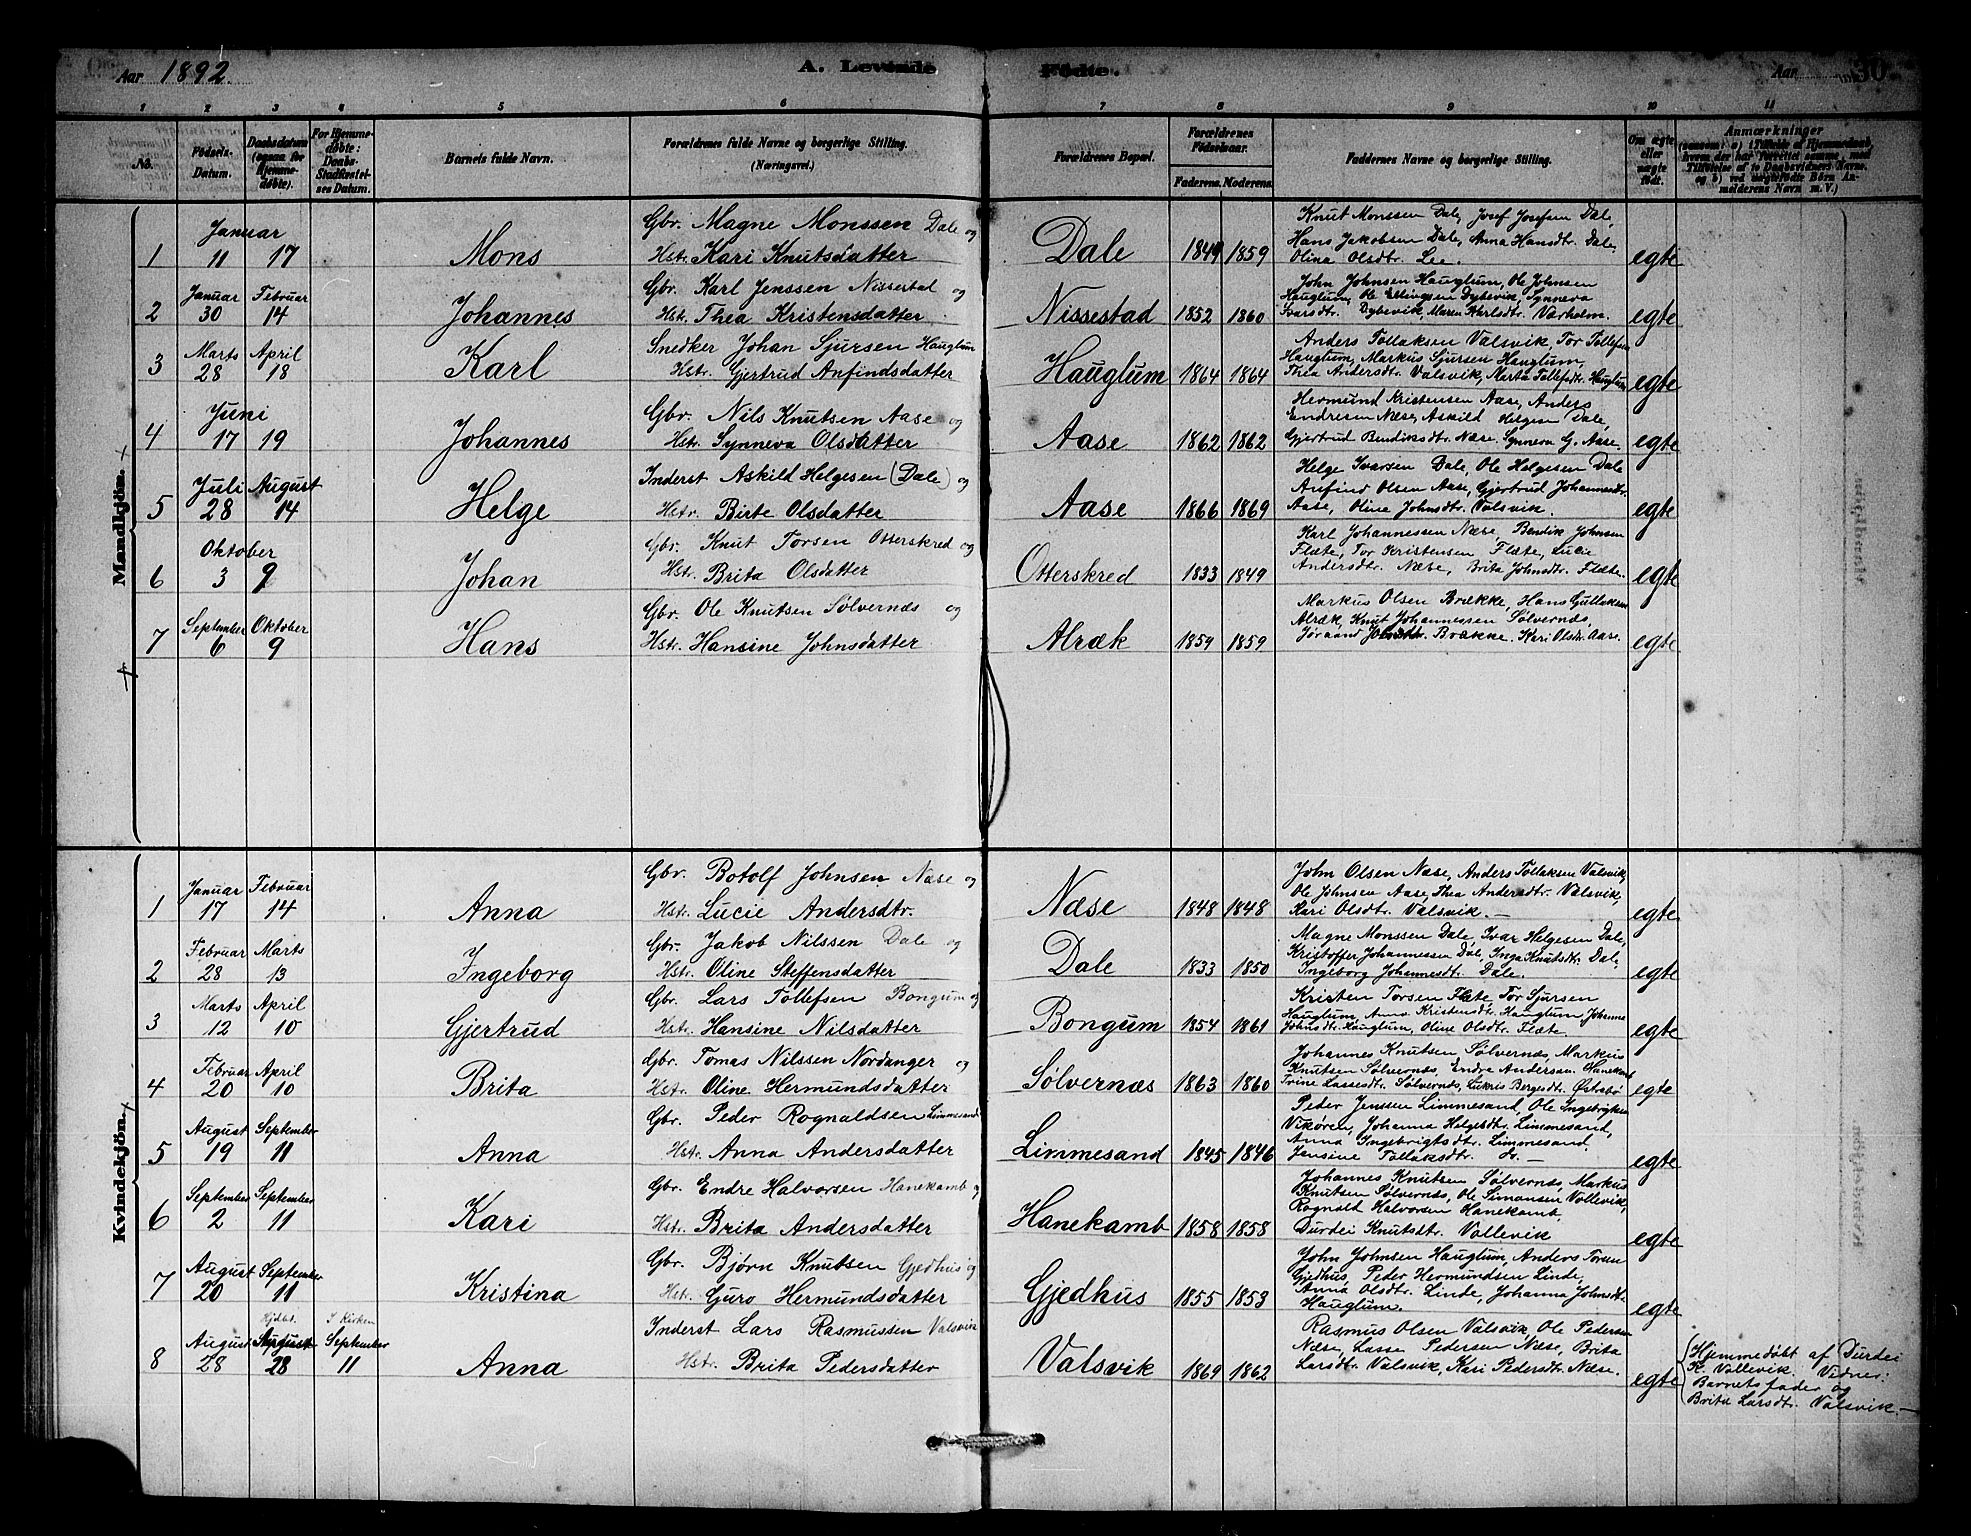 Aar 1892.
A. Levende Fødte.
Aar
30
1 2 3 4 5 6 7 8 9 10 11
No.
Fødsels-Datum.
Daabsdatum (ogsaa for Hjemme-døbte).
For Hjemme-døbte: Daabs-Stadfæstel-ses Datum.
Barnets fulde Navn.
Forældrenes fulde Navne og borgerlige Stilling. (Næringsvei.)
Forældrenes Bopæl.
Forældrenes Fødselsaar.
Faderens. Moderens.
Faddernes Navne og borgerlige Stilling.
Om ægte eller uægte født.
Anmærkninger
Mandkjön.
Januar
1 11 17 Mons
Gbr. Magne Monssen Dale og
Hstr. Kari Knutsdatter
Dale 1849 1859
Knut Monssen Dale, Josef Josefsen Dale,
Hans Jakobsen Dale, Anna Hansdtr. Dale,
Olina Olsdtr. Lee.
egte
Januar Februar
2 30 14 Johannes
Gbr. Karl Jenssen Nissestad og
Hstr. Thea Kristensdatter
Nissestad 1852 1860
John Johnsen Hauglum, Ole Johnsen
Hauglum, Ole Ellingsen Dybevik, Synneva
Ivarsdtr. Dybevik, Maren Karlsdtr. Varholm.
egte
Marts April
3 28 18 Karl
Snedker Johan Sjursen Hauglum
Hstr. Gjertrud Anfindsdatter
Hauglum 1864 1864
Anders Tollaksen Valsvik, Tor Tollefsen
Hauglum, Markus Sjursen Hauglum,
Thea Andersdtr. Valsvik, Marta Tollefsdtr. Hauglum
egte
Juni
4 17 19 Johannes
Gbr. Nils Knutsen Aase og
Hstr. Synneva Olsdatter
Aase 1862 1862
Hermund Kristensen Aase, Anders
Endresen Næse, Askild Helgesen Dale,
Gjertrud Bendiksdtr. Næse, Synneva G. Aase.
egte
Juli August
5 28 14 Helge
Inderst Askild Helgesen (Dale) og
Hstr. Birte Olsdatter
Aase 1866 1869
Helge Ivarsen Dale, Ole Helgesen Dale
Anfind Olsen Aase, Gjertrud Johannesdtr.
Aase, Oline Johnsdtr. Valsvik.
egte
Oktober
6 3 9 Johan
Gbr. Knut Torsen Otterskred og
Hstr. Brita Olsdatter
Otterskred 1833 1849
Karl Johannessen Næse, Bendik Johnsen
Flæte, Tor Kristensen Flæte, Lucie
Andersdtr. Næse, Brita Johnsdtr. Flæte.
egte
September Oktober
7 6 9 Hans
Gbr. Ole Knutsen Sølvernæs og
Hstr. Hansine Johnsdatter
Alræk 1859 1859
Markus Olsen Brække, Hans Gullaksen
Alræk, Knut Johannessen Sølvernæs,
Jøraand Johnsdtr. Brække. Kari Olsdtr. Aase.
egte
Kvindekjön.
Januar Februar
1 17 14 Anna
Gbr. Botolf Johnsen Næse og
Hstr. Lucie Andersdtr.
Næse 1848 1848
John Olsen Næse, Anders Tollaksen Valsvik,
Ole Johnsen Aase, Thea Andersdtr. Valsvik,
Kari Olsdtr. Valsvik. —
egte
Februar Marts
2 28 13 Ingeborg
Gbr. Jakob Nilssen Dale og
Hstr. Oline Steffensdatter
Dale 1833 1850
Magne Monssen Dale, Ivar Helgesen Dale,
Kristoffer Johannesen Dale, Inga Knutsdtr. Dale,
Ingeborg Johannesdtr. Dale.
egte
Marts April
3 12 10 Gjertrud
Gbr. Lars Tollefsen Bongum og
Hstr. Hansine Nilsdatter
Bongum 1854 1861
Kristen Torsen Flæte, Tor Sjursen
Hauglum, Anna Kristensdtr. Hauglum, Johanna
Johnsdtr. Hauglum, Oline Olsdtr. Flæte.
egte
Februar April
4 20 10 Brita
Gbr. Tomas Nilssen Nordanger og
Hstr. Oline Hermundsdatter
Sølvernæs 1863 1860
Johannes Knutsen Sølvernæs, Markus
Knutsen Sølvernæs, Endre Andersen Hanekamb
Trine Lassesdtr. Sølvernæs, Lukris Bergesdtr. Østebø
egte
August September
5 19 11 Anna
Gbr. Peder Rognaldsen Limmesand
Hstr. Anna Andersdatter
Limmesand 1845 1846
Peder Jenssen Limmesand, Ole Ingebrigtsen
Vikøren, Johanna Helgesdtr. Limmesand,
Anna Ingebrigtsdtr. Limmesand,
Jensine Tollaksdtr. do. —
egte
September September
6 2 11 Kari
Gbr. Endre Halvorsen Hanekamb og
Hstr. Brita Andersdatter
Hanekamb 1858 1858
Johannes Knutsen Sølvernæs, Markus
Knutsen Sølvernæs, Ole Simonsen Vallevik,
Rognald Halvorsen Hanekamb,
Durdei Knutsdtr. Vallevik
egte
August September
7 20 11 Kristina
Gbr. Bjørn Knutsen Gjedhus og
Hstr. Guro Hermundsdatter
Gjedhus 1855 1853
John Johnsen Hauglum, Anders Torsen
Gjedhus, Peder Hermundsen Linde,
Anna Olsdtr. Linde, Johanna Johnsdtr.
Hauglum.
egte
Hjdbt. I Kirken
August August September
8 28 28 11 Anna
Inderst Lars Rasmussen Valsvik
Hstr. Brita Pedersdatter
Valsvik 1869 1862
Rasmus Olsen Valsvik, Ole Pedersen
Næse, Lasse Pedersen Næse, Brita
Larsdtr. Valsvik, Kari Pedersdtr. Næse.
egte
Hjemmedøbt af Durdei
K. Vallevik. Vidner:
Barnets fader og
Brita Larsdtr. Valsvik. —